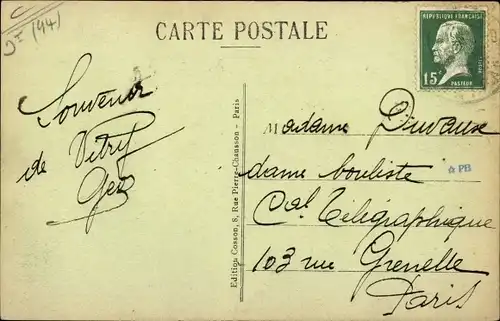 (94)
CARTE POSTALE
REPUBLIQUE FRANÇAISE
15c
PASTEUR
Souvenir
de Vitry
Geo
Edition Cosson, 8, Rue Pierre-Chausson - Paris
Madame Duvaux
dame
Cal Télégraphique
103 rue Grenelle
Paris
☆ PB